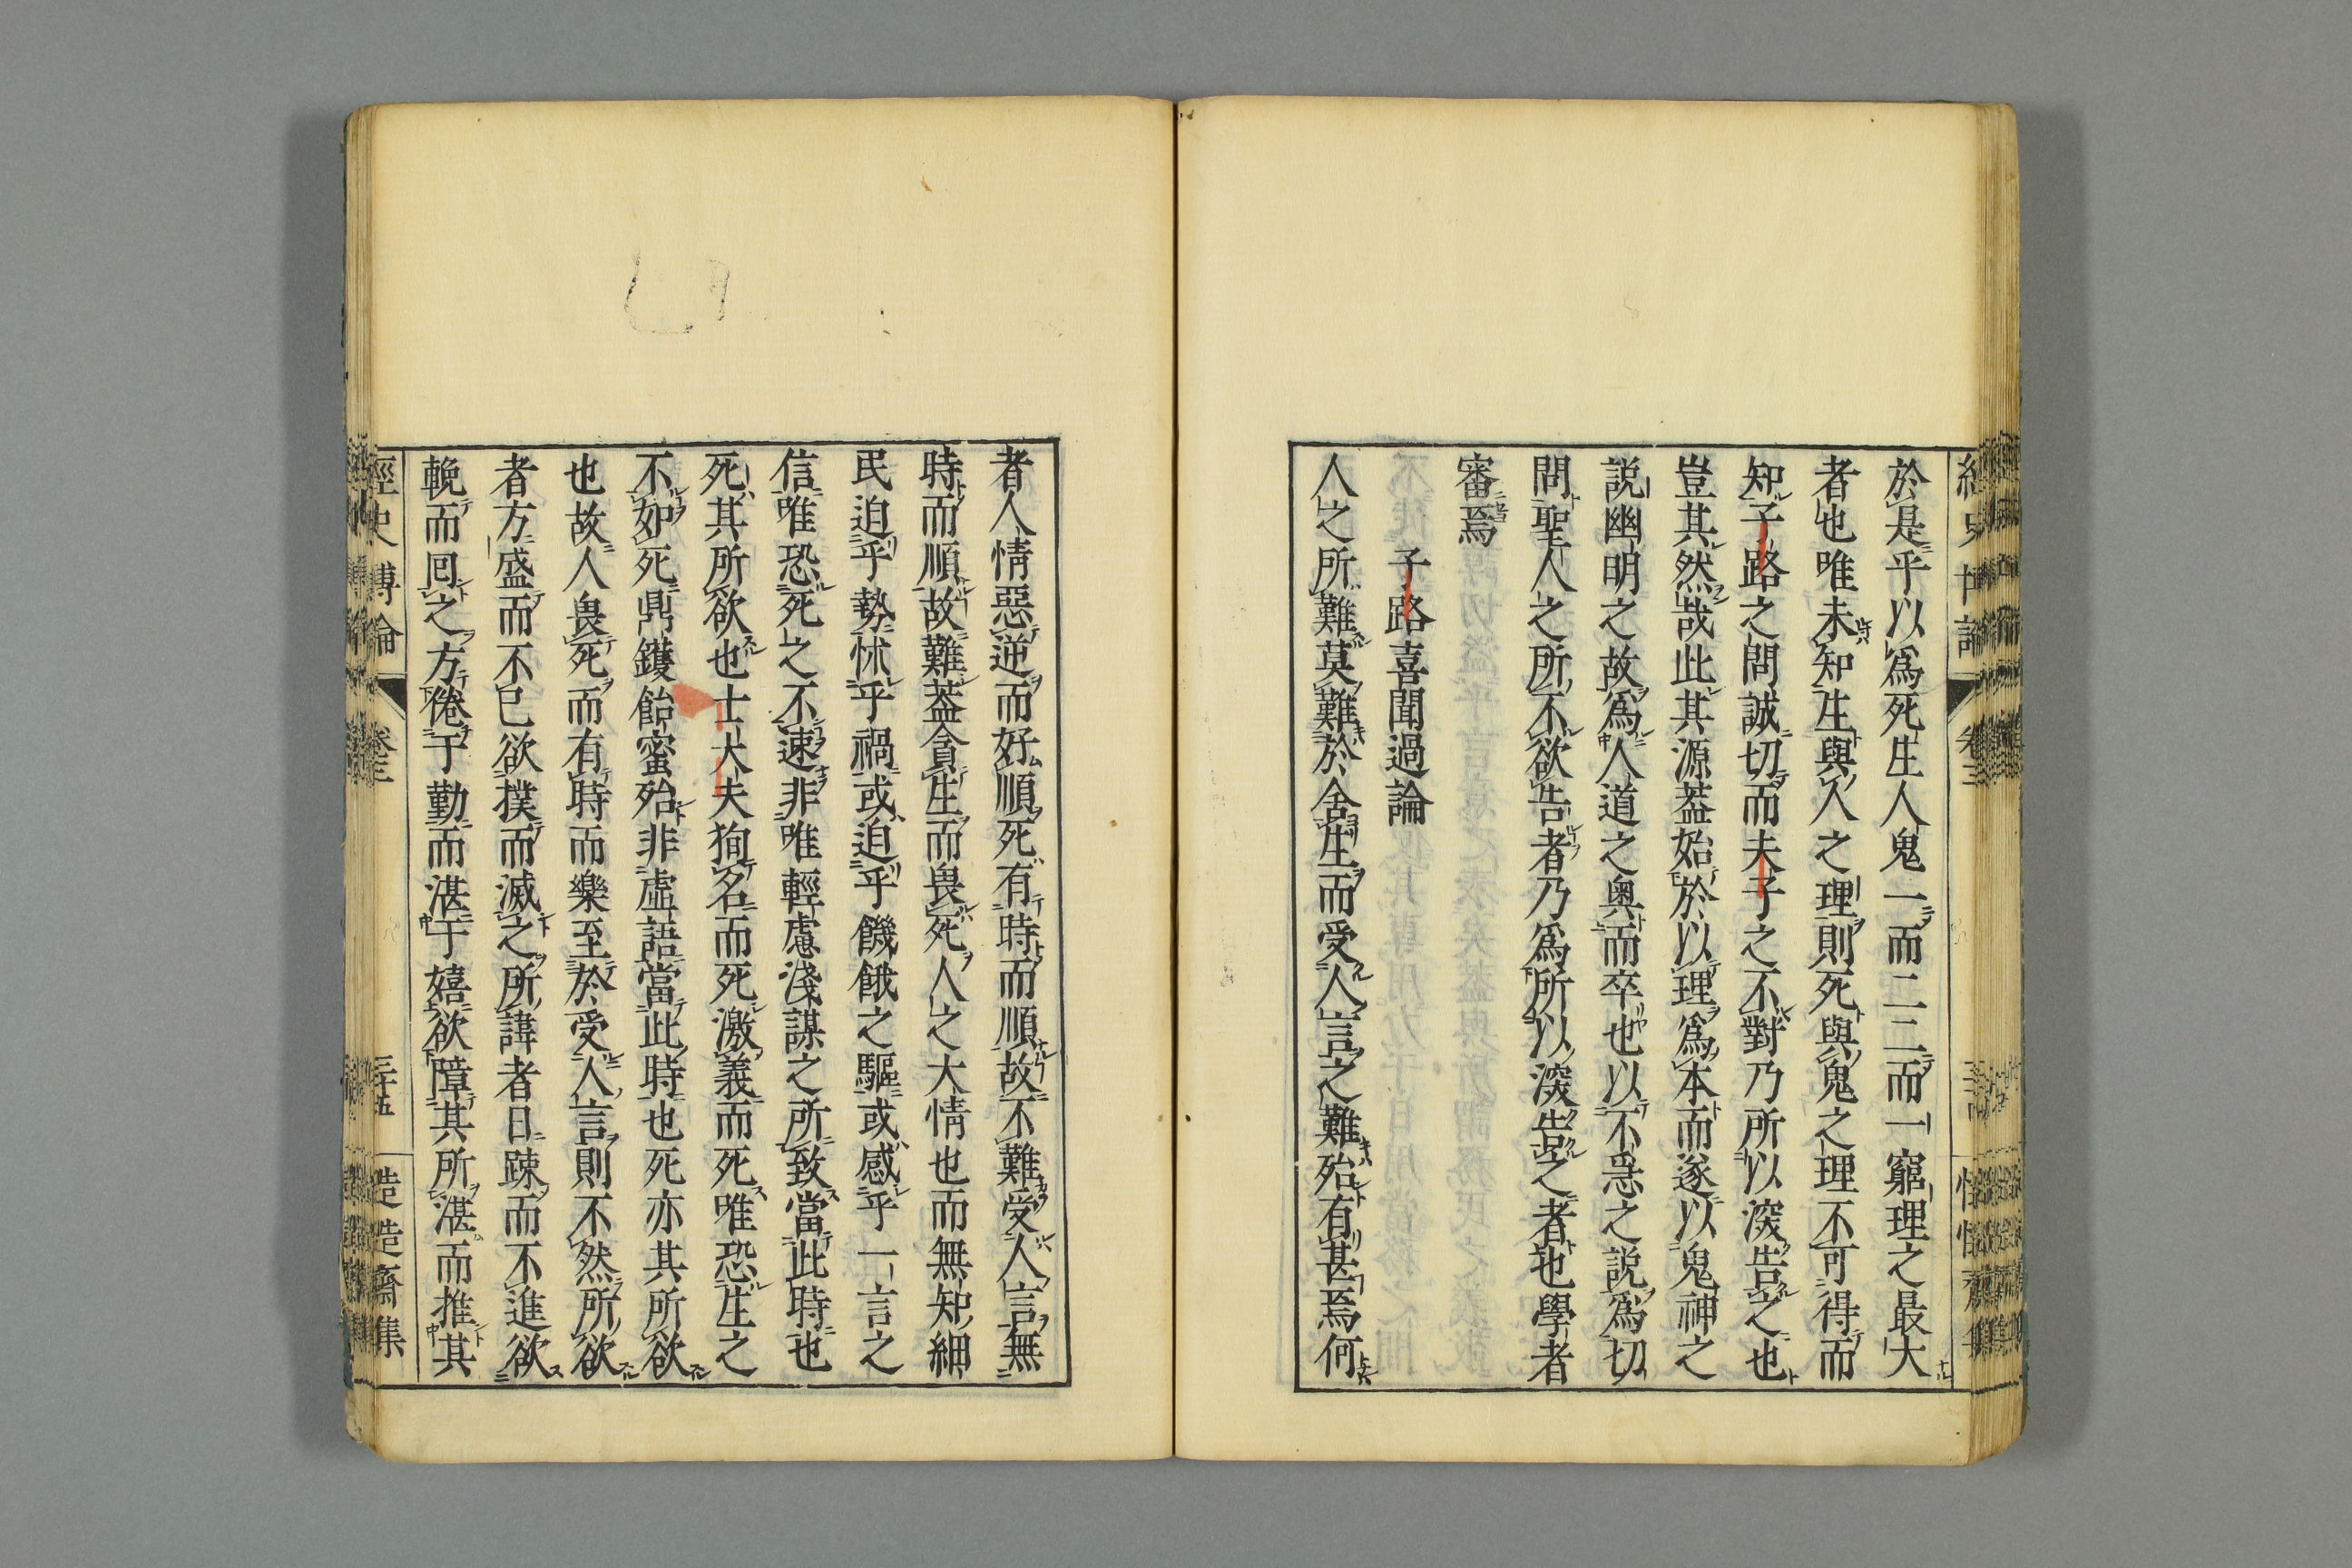 於是乎以爲死生人鬼一而二二而一窮理之最大
者也唯未知生與人之理則死與鬼之理不可得而
知子路之問誠切而夫子之不對乃所以深告之也
豈其然哉此其源葢始於以理爲本而遂以鬼神之
説幽明之故爲人道之奥而卒也以不急之説爲切
問聖人之所不欲告者乃爲所以深告之者也學者
審焉
子路喜聞過論
人之所難莫難於舍生而受人言之難殆有甚焉何
者人情惡逆而好順死有時而順故不難受人言無
時而順故難葢貪生而畏死人之大情也而無知細
民迫乎勢怵乎禍或迫乎饑餓之驅或感乎一言之
信唯恐死之不速非唯輕慮淺謀之所致當此時也
死其所欲也士大夫狥名而死激義而死唯恐生之
不如死鼎鑊飴蜜殆非虛語當此時也死亦其所欲
也故人畏死而有時而樂至於受人言則不然所欲
者方盛而不已欲撲而滅之所諱者日疎而不進欲
輓而囘之方倦于勤而湛于嬉欲障其所湛而推其
經史博論 卷三 三十五 造造齋集